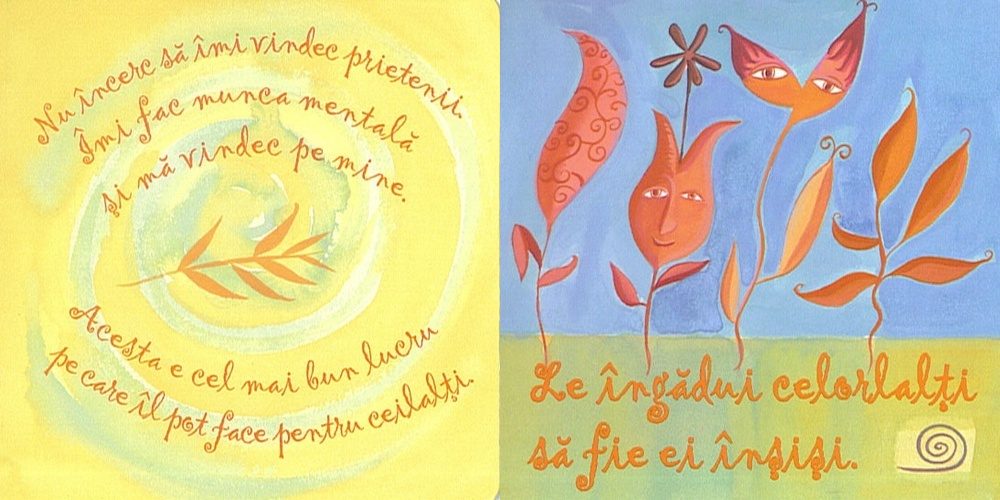 Nu încerc să îmi vindec prietenii.
Îmi fac munca mentală
și mă vindec pe mine.
Acesta e cel mai bun lucru
pe care îl pot face pentru ceilalți.
Le îngădui celorlalți
să fie ei înșiși.